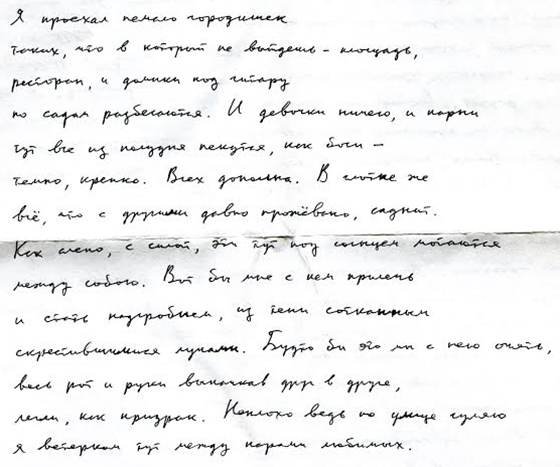 Я проехал немало городишек
таких, что в который не выйдешь – площадь,
ресторан, и домики под гитару
по садам разбегаются. И девочки ничего, и парни
тут все из полудня пекутся, как боги –
темно, крепко. Всех дополна. В глотке же
всё, что с другими давно прожёвано, саднит.
Как слепо, с силой, эти тут под солнцем мотаются
между собою. Вот бы мне с кем прилечь
и стать надгробием, из тени сотканным
скрестившимися лучами. Будто бы это мы с него опять,
весь рот и руки выпачкав друг в друге,
легли, как призрак. Неплохо ведь по улице гуляю
я ветерком тут между парами любимых.